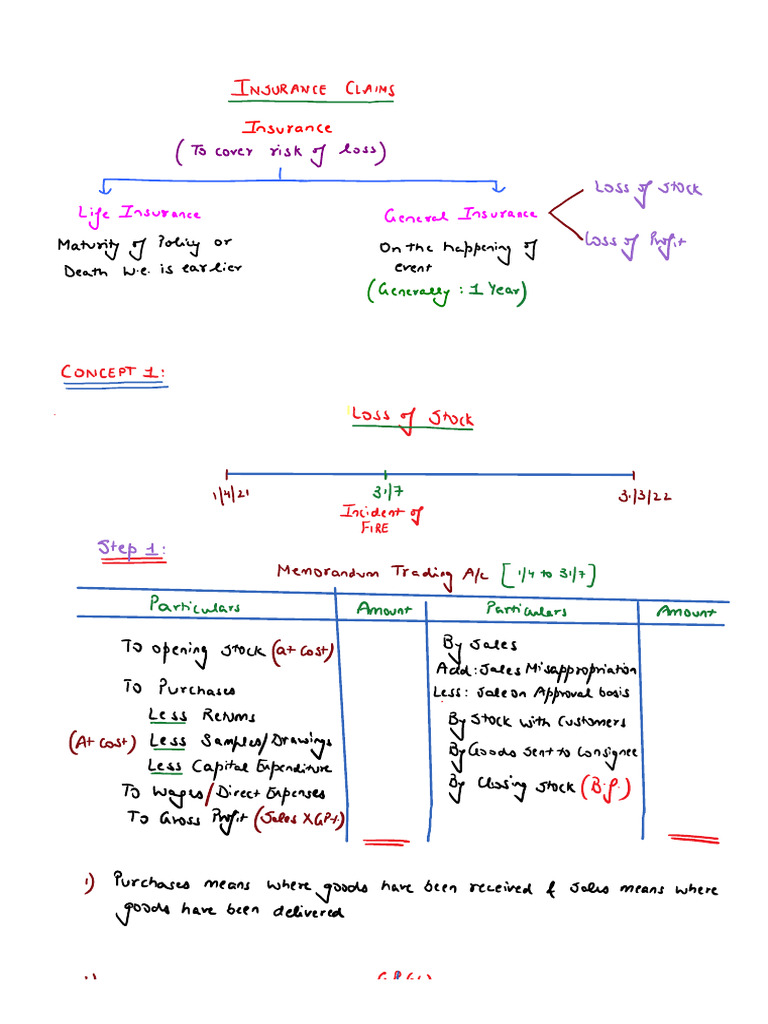 INSURANCE CLAIMS
Insurance
(To cover risk of loss)
Life Insurance
Maturity of Policy or
Death w.e. is earlier
General Insurance
On the happening of
event
(Generally : 1 Year)
Loss of Stock
Loss of Profit
CONCEPT 1:
Loss of Stock
1/4/21
31/7
31/3/22
Incident of
FIRE
Step 1:
Memorandum Trading A/c [1/4 to 31/7]
Particulars Amount Particulars Amount
To opening stock (at cost)
To Purchases
Less Returns
(At cost) Less Samples/Drawings
Less Capital Expenditure
To Wages/Direct Expenses
To Gross Profit (Sales X GP%)
By Sales
Add: Sales Misappropriation
Less: Sale on Approval basis
By Stock with Customers
By Goods Sent to Consignee
By Closing Stock (B.f.)
1) Purchases means where goods have been received & Sales means where
goods have been delivered